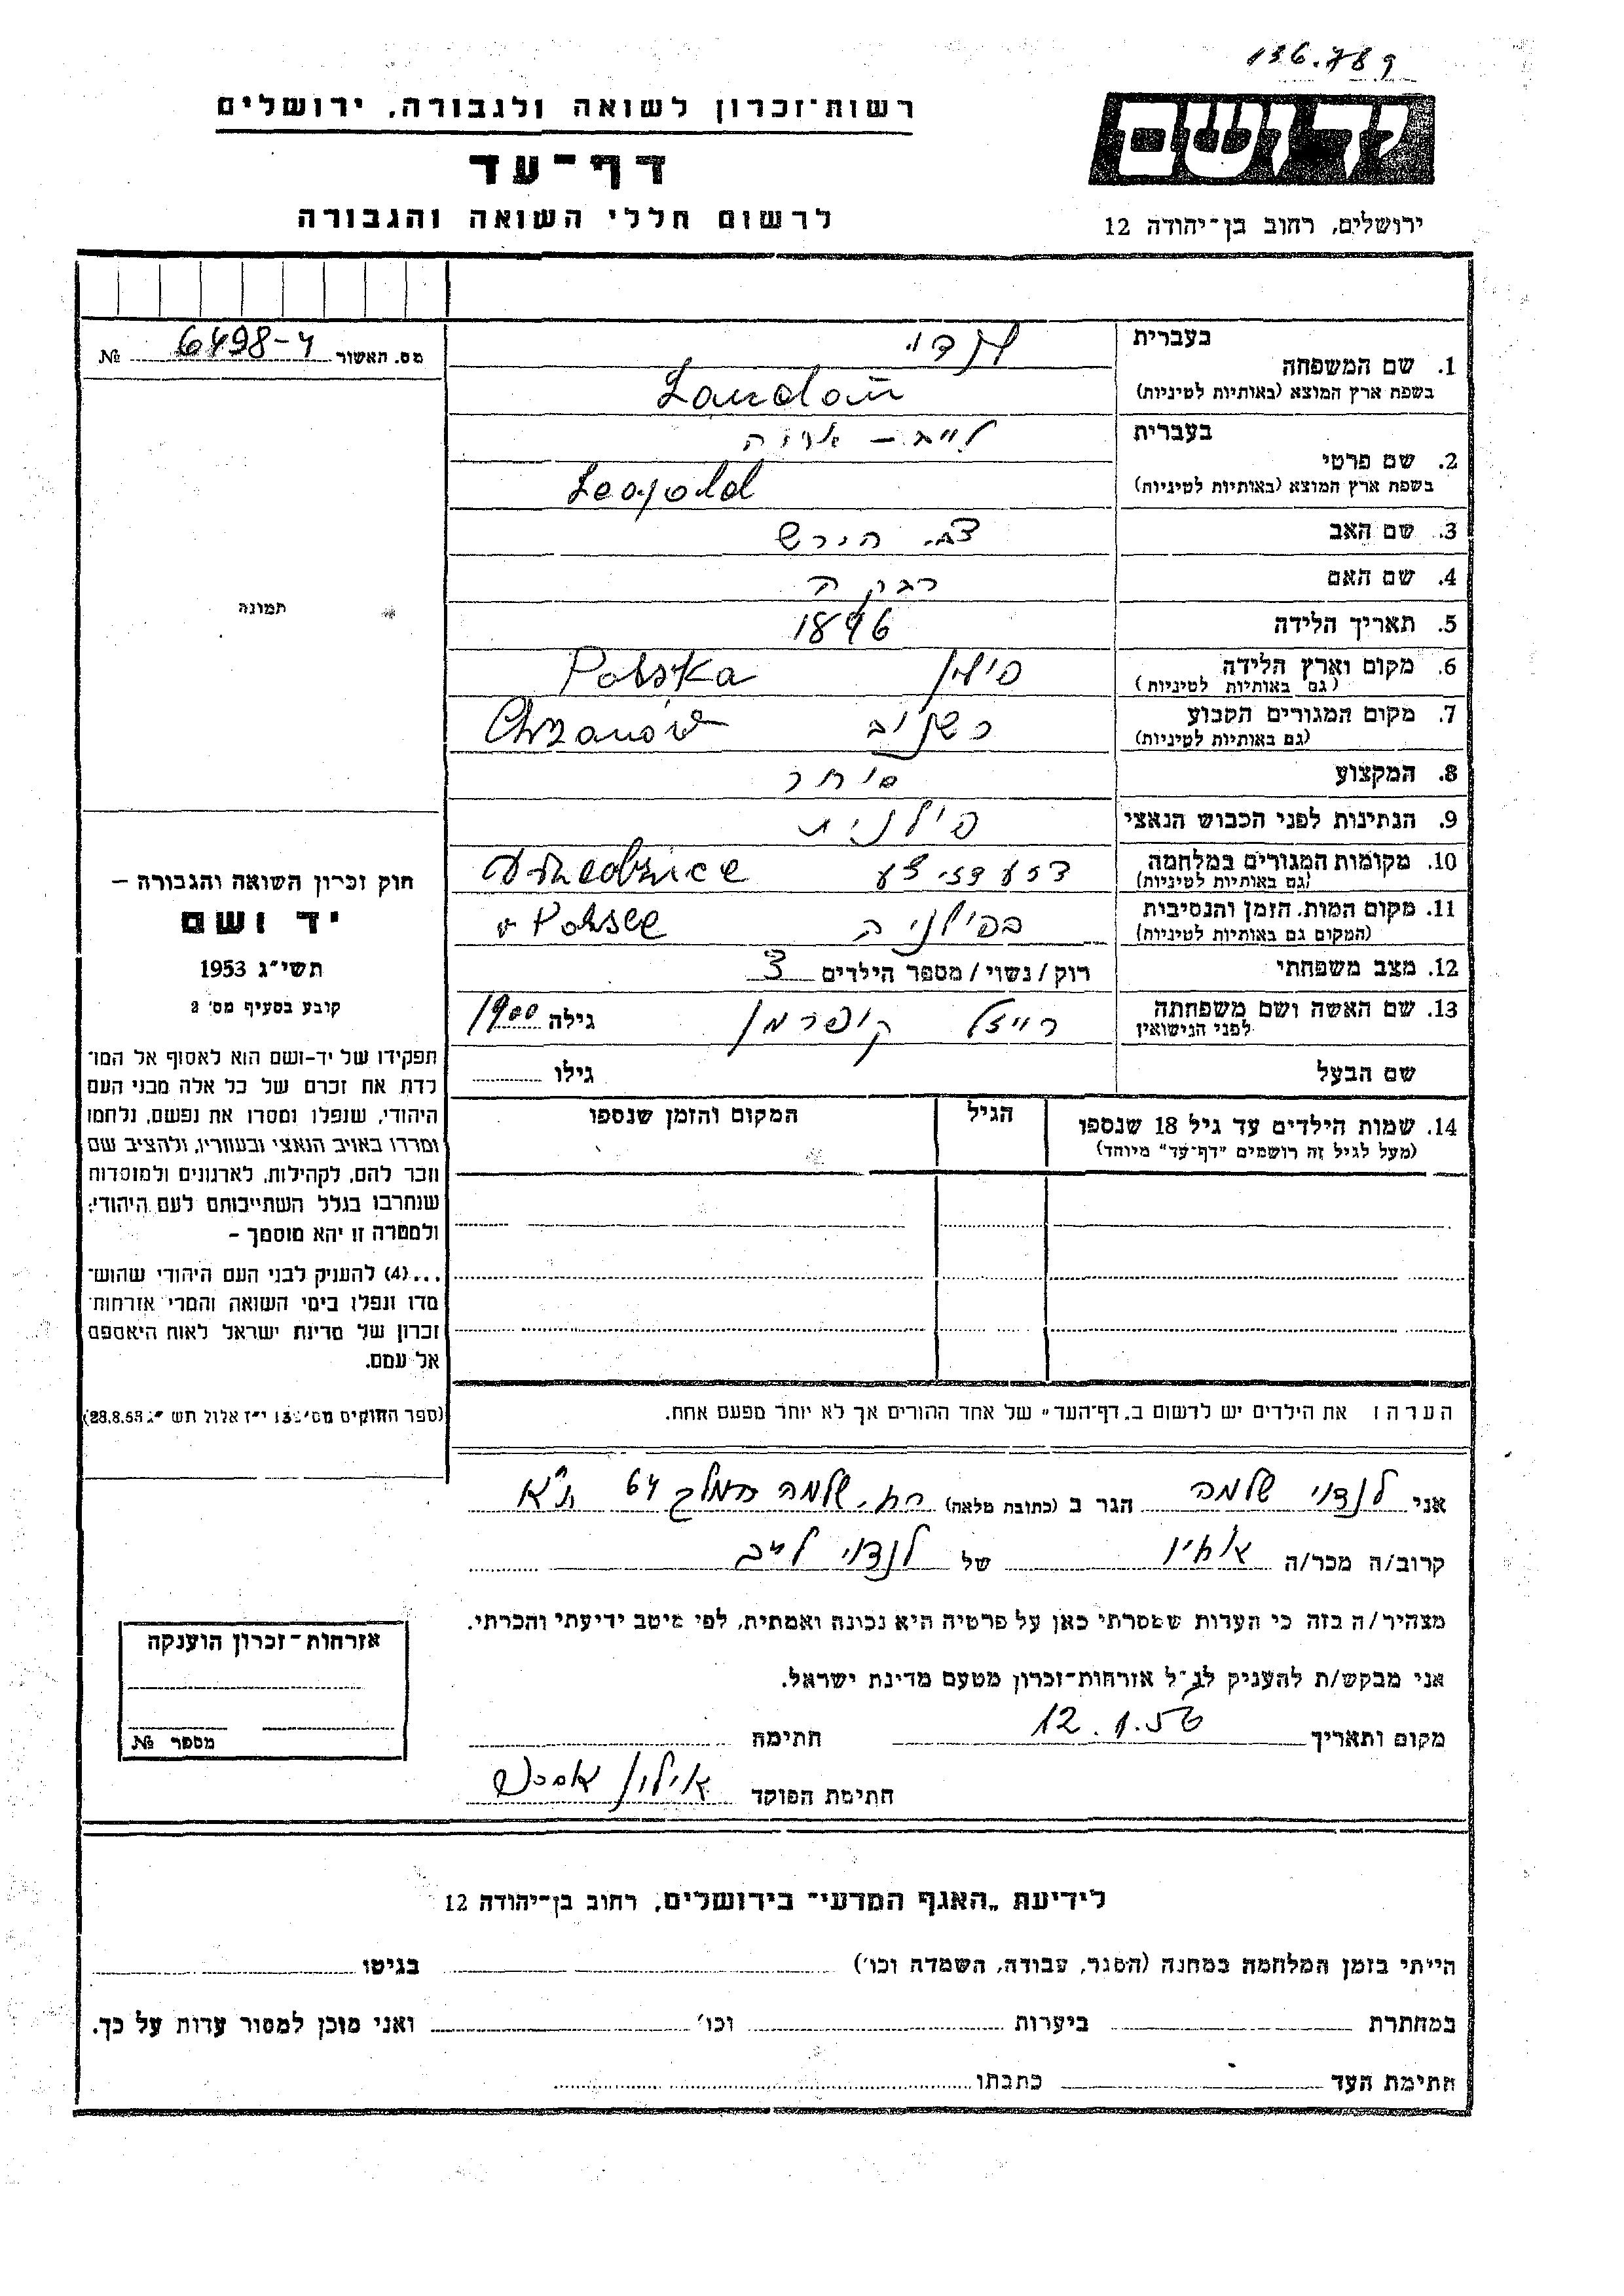 136.789
רשות־זכרון לשואה ולגבורה, ירושלים
דף־עד
לרשום חללי השואה והגבורה
יד ושם
ירושלים, רחוב בן־יהודה 12
מס. האשור 6498-4 №
בעברית
1. שם המשפחה לנדוי
בשפת ארץ המוצא (באותיות לטיניות) Landau
בעברית לייב - אריה
2. שם פרטי
בשפת ארץ המוצא (באותיות לטיניות) Leopold
3. שם האב צבי הירש
4. שם האם רבקה
5. תאריך הלידה 1896
6. מקום וארץ הלידה פולין Polska
(גם באותיות לטיניות)
7. מקום המגורים הקבוע כשנוב Chrzanów
(גם באותיות לטיניות)
8. המקצוע סוחר
9. הנתינות לפני הכבוש הנאצי פולנית
10. מקומות המגורים במלחמה
(גם באותיות לטיניות)
11. מקום המות, הזמן והנסיבות בפולניה w Polsce
(המקום גם באותיות לטיניות)
12. מצב משפחתי רוק / נשוי / מספר הילדים 3
13. שם האשה ושם משפחתה רייזל קופרמן גילה 1900
לפני הנישואין
שם הבעל גילו
14. שמות הילדים עד גיל 18 שנספו הגיל המקום והזמן שנספו
(מעל לגיל זה רושמים "דף־עד" מיוחד)
הערה: את הילדים יש לרשום ב„דף־העד" של אחד ההורים אך לא יותר מפעם אחת.
תמונה
חוק זכרון השואה והגבורה –
יד ושם
תשי"ג 1953
קובע בסעיף מס' 2
תפקידו של יד-ושם הוא לאסוף אל המו־
לדת את זכרם של כל אלה מבני העם
היהודי, שנפלו ומסרו את נפשם, נלחמו
ומרדו באויב הנאצי ובעוזריו, ולהציב שם
וזכר להם, לקהילות, לארגונים ולמוסדות
שנחרבו בגלל השתייכותם לעם היהודי;
ולמטרה זו יהא מוסמך –
...(4) להעניק לבני העם היהודי שהוש־
מדו ונפלו בימי השואה והמרי אזרחות־
זכרון של מדינת ישראל לאות היאספם
אל עמם.
(ספר החוקים מס' 132 י"ז אלול תשי"ג 28.8.53)
אני לנדוי שלמה הגר ב (כתובת מלאה) רח. שלמה המלך 64 ת"א
קרוב/ה מכר/ה אחיו של לנדוי לייב
מצהיר/ה בזה כי העדות שמסרתי כאן על פרטיה היא נכונה ואמתית, לפי מיטב ידיעתי והכרתי.
אני מבקש/ת להעניק לנ"ל אזרחות־זכרון מטעם מדינת ישראל.
מקום ותאריך 12.1.56 חתימה
חתימת הפוקד אילון
אזרחות־זכרון הוענקה
מספר №
לידיעת „האגף המדעי" בירושלים, רחוב בן־יהודה 12
הייתי בזמן המלחמה במחנה (הסגר, עבודה, השמדה וכו') בגיטו
במחתרת ביערות וכו' ואני מוכן למסור עדות על כך.
חתימת העד כתבתו